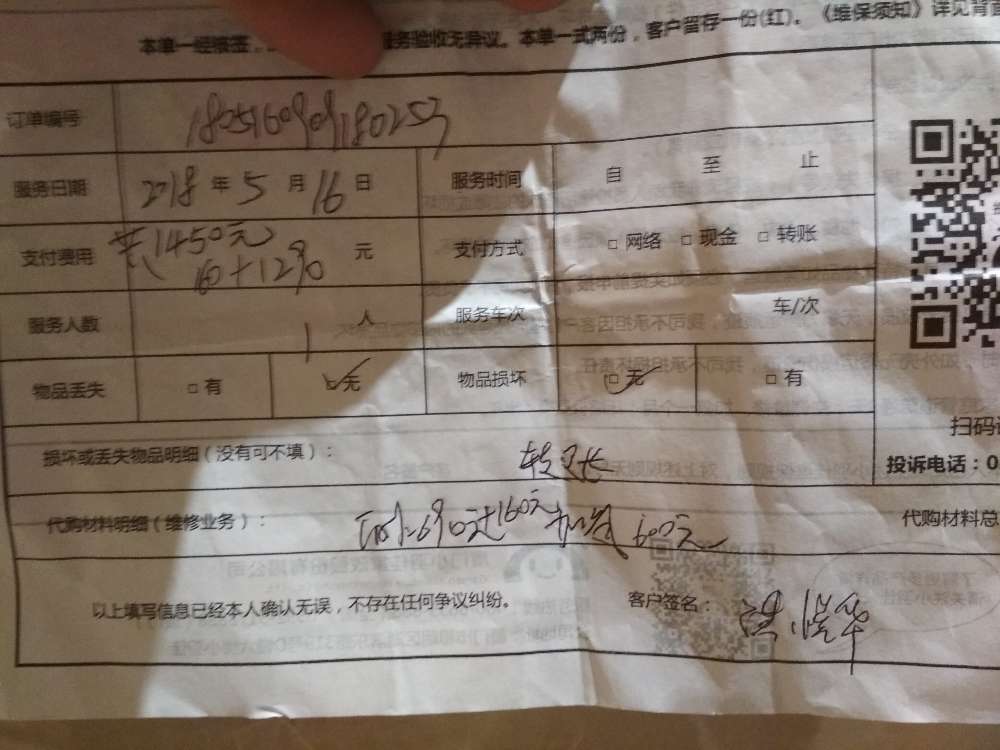 本单一经签,服务验收无异议。本单一式两份,客户留存一份(红)。《维保须知》详见背
订单编号
服务日期 2018 年 5 月 16 日 服务时间 自 至 止
支付费用 共1450元 元 支付方式 □ 网络 □ 现金 □ 转账
160+1290
服务人数 1 人 服务车次 车/次
物品丢失 □ 有 □ 无 物品损坏 □ 无 □ 有
扫码
损坏或丢失物品明细(没有可不填):
投诉电话:0
代购材料明细(维修业务): 690元+160元 600元
代购材料总
以上填写信息已经本人确认无误,不存在任何争议纠纷。 客户签名: